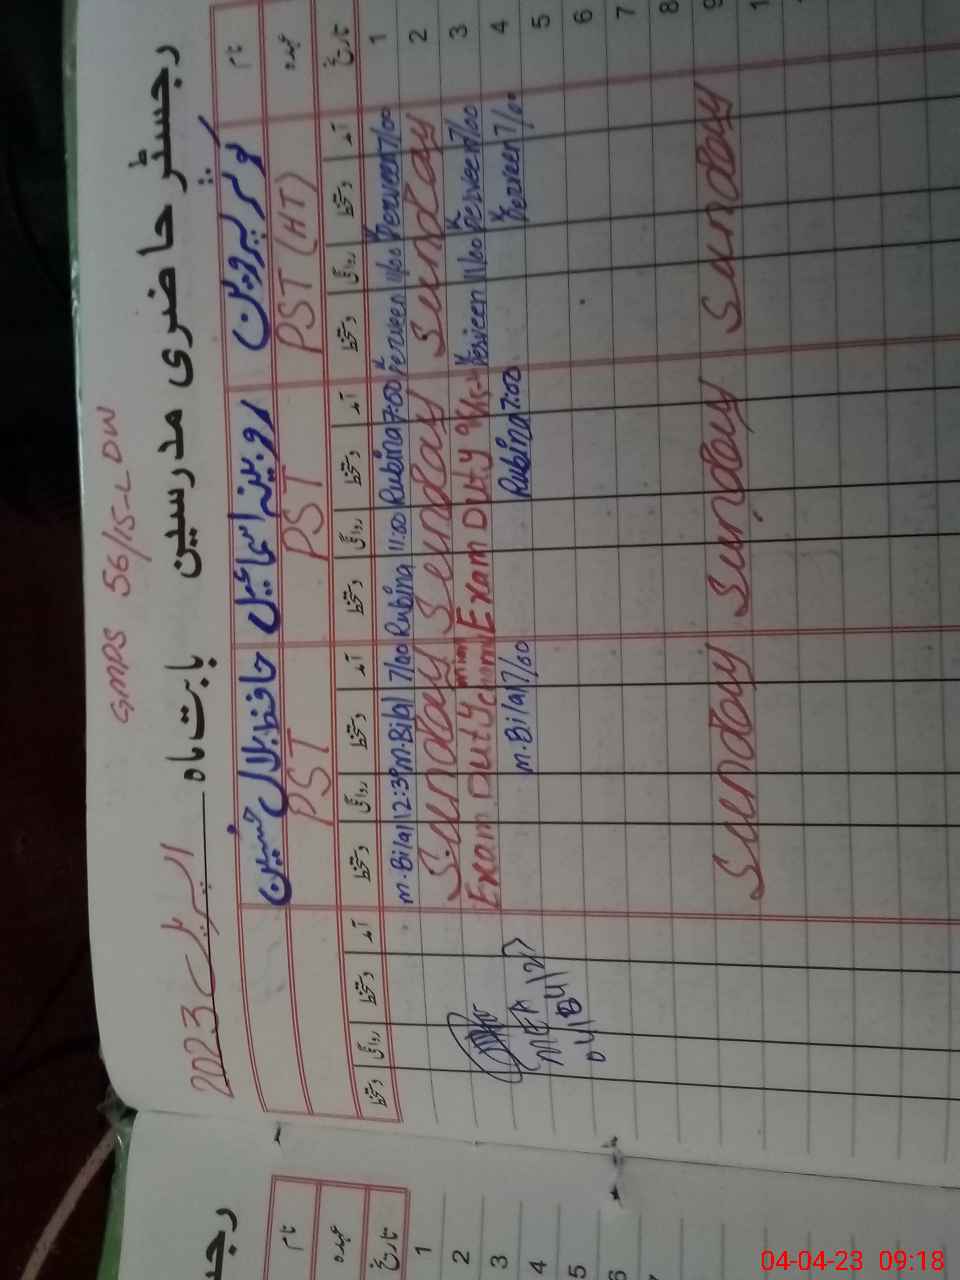 GMPS 56/15-L DW
رجسٹر حاضری مدرسین بابت ماہ اپریل 2023
نام کوثر پروین روبینہ اسماعیل حافظ بلال حسین
عہدہ PST (HT) PST PST
تاریخ آمد دستخط روانگی دستخط آمد دستخط روانگی دستخط آمد دستخط روانگی دستخط آمد دستخط روانگی دستخط
1 7/00 K Perveen 11/00 K Perveen 7:00 Rubina 11:00 Rubina 7/00 M.Bilal 12:30 M.Bilal
2 Sunday Sunday Sunday
3 7/00 K Perveen 11/00 K Perveen Exam Duty Exam Duty
4 7/00 K Perveen 7:00 Rubina 7/00 M.Bilal
5
6
7
8
9 Sunday Sunday Sunday
1
MEA
رجسٹر
نام
عہدہ
تاریخ
1
2
3
4
5
6
04-04-23 09:18